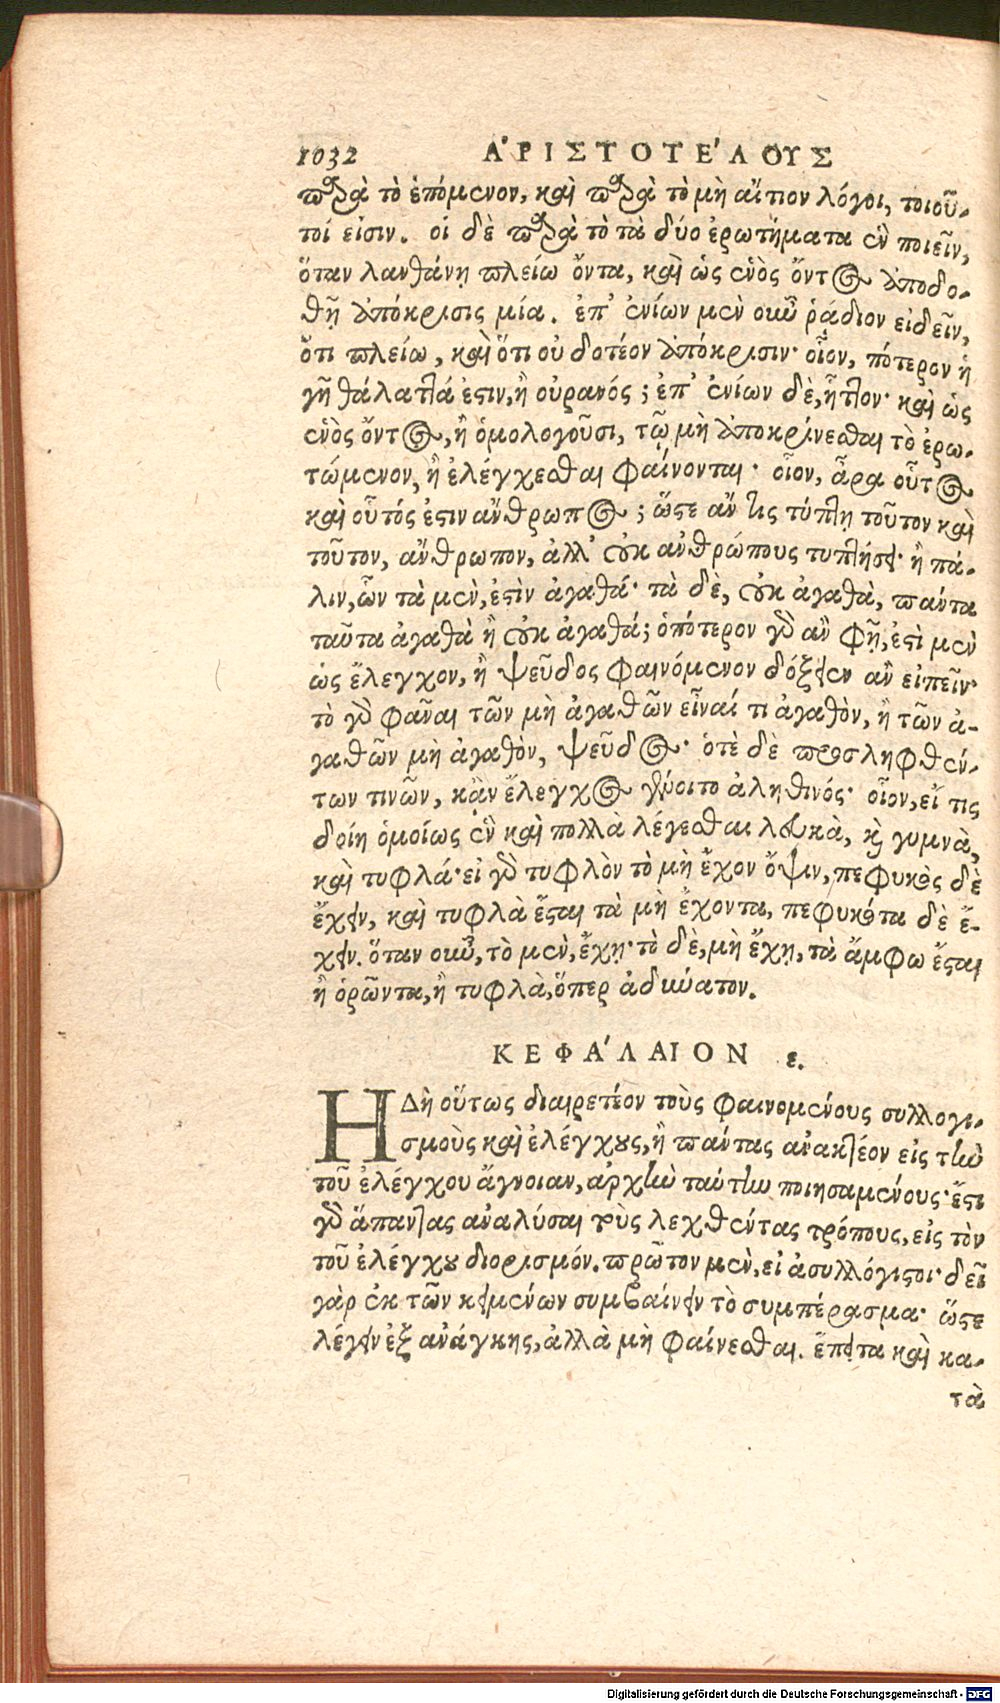 1032 ἈΡΙΣΤΟΤΈΛΟΥΣ
παρὰ τὸ ἑπόμενον, καὶ παρὰ τὸ μὴ αἴτιον λόγοι, τοιοῦ-
τοί εἰσιν. οἱ δὲ παρὰ τὸ τὰ δύο ἐρωτήματα ἓν ποιεῖν,
ὅταν λανθάνῃ πλείω ὄντα, καὶ ὡς ἑνὸς ὄντος ἀποδο-
θῇ ἀπόκρισις μία. ἐπ' ἐνίων μὲν οὖν ῥάδιον εἰδεῖν,
ὅτι πλείω, καὶ ὅτι οὐ δοτέον ἀπόκρισιν· οἷον, πότερον ἡ
γῆ θάλαττά ἐστιν, ἢ οὐρανός; ἐπ' ἐνίων δὲ, ἧττον· καὶ ὡς
ἑνὸς ὄντος, ἢ ὁμολογοῦσι, τῷ μὴ ἀποκρίνεσθαι τὸ ἐρω-
τώμενον, ἢ ἐλέγχεσθαι φαίνονται· οἷον, ἆρα οὗτος
καὶ οὗτός ἐστιν ἄνθρωπος; ὥστε ἄν τις τύπτῃ τοῦτον καὶ
τοῦτον, ἄνθρωπον, ἀλλ' οὐκ ἀνθρώπους τυπτήσει· ἢ πά-
λιν, ὧν τὰ μὲν, ἐστὶν ἀγαθά· τὰ δὲ, οὐκ ἀγαθὰ, πάντα
ταῦτα ἀγαθὰ ἢ οὐκ ἀγαθά; ὁπότερον γὰρ ἂν φῇ, ἔστι μὲν
ὡς ἔλεγχον, ἢ ψεῦδος φαινόμενον δόξειεν ἂν εἰπεῖν·
τὸ γὰρ φᾶναι τῶν μὴ ἀγαθῶν εἶναί τι ἀγαθὸν, ἢ τῶν ἀ-
γαθῶν μὴ ἀγαθὸν, ψεῦδος· ὁτὲ δὲ προσληφθέν-
των τινῶν, κἂν ἔλεγχος γένοιτο ἀληθινός· οἷον, εἴ τις
δοίη ὁμοίως ἓν καὶ πολλὰ λέγεσθαι λευκὰ, καὶ γυμνὰ,
καὶ τυφλά· εἰ γὰρ τυφλὸν τὸ μὴ ἔχον ὄψιν, πεφυκὸς δὲ
ἔχειν, καὶ τυφλὰ ἔσται τὰ μὴ ἔχοντα, πεφυκότα δὲ ἔ-
χειν. ὅταν οὖν, τὸ μὲν, ἔχῃ· τὸ δὲ, μὴ ἔχῃ, τὰ ἄμφω ἔσται
ἢ ὁρῶντα, ἢ τυφλὰ, ὅπερ ἀδύνατον.
ΚΕΦΆΛΑΙΟΝ ε.
ΗΔὴ οὕτως διαιρετέον τοὺς φαινομένους συλλογι-
σμοὺς καὶ ἐλέγχους, ἢ πάντας ἀνακτέον εἰς τὴν
τοῦ ἐλέγχου ἄγνοιαν, ἀρχὴν ταύτην ποιησαμένους· ἔστι
γὰρ ἅπαντας ἀναλύσαι τοὺς λεχθέντας τρόπους, εἰς τὸν
τοῦ ἐλέγχου διορισμόν. πρῶτον μὲν, εἰ ἀσυλλόγιστοι· δεῖ
γὰρ ἐκ τῶν κειμένων συμβαίνειν τὸ συμπέρασμα· ὥστε
λέγειν ἐξ ἀνάγκης, ἀλλὰ μὴ φαίνεσθαι. ἔπειτα καὶ κα-
τὰ
Digitalisierung gefördert durch die Deutsche Forschungsgemeinschaft - DFG